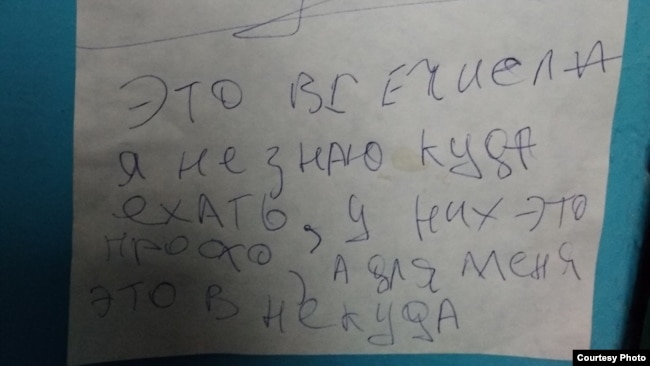 ЭТО
я не знаю куда
ехать, у них это
, а для меня
это в некуда
Courtesy Photo